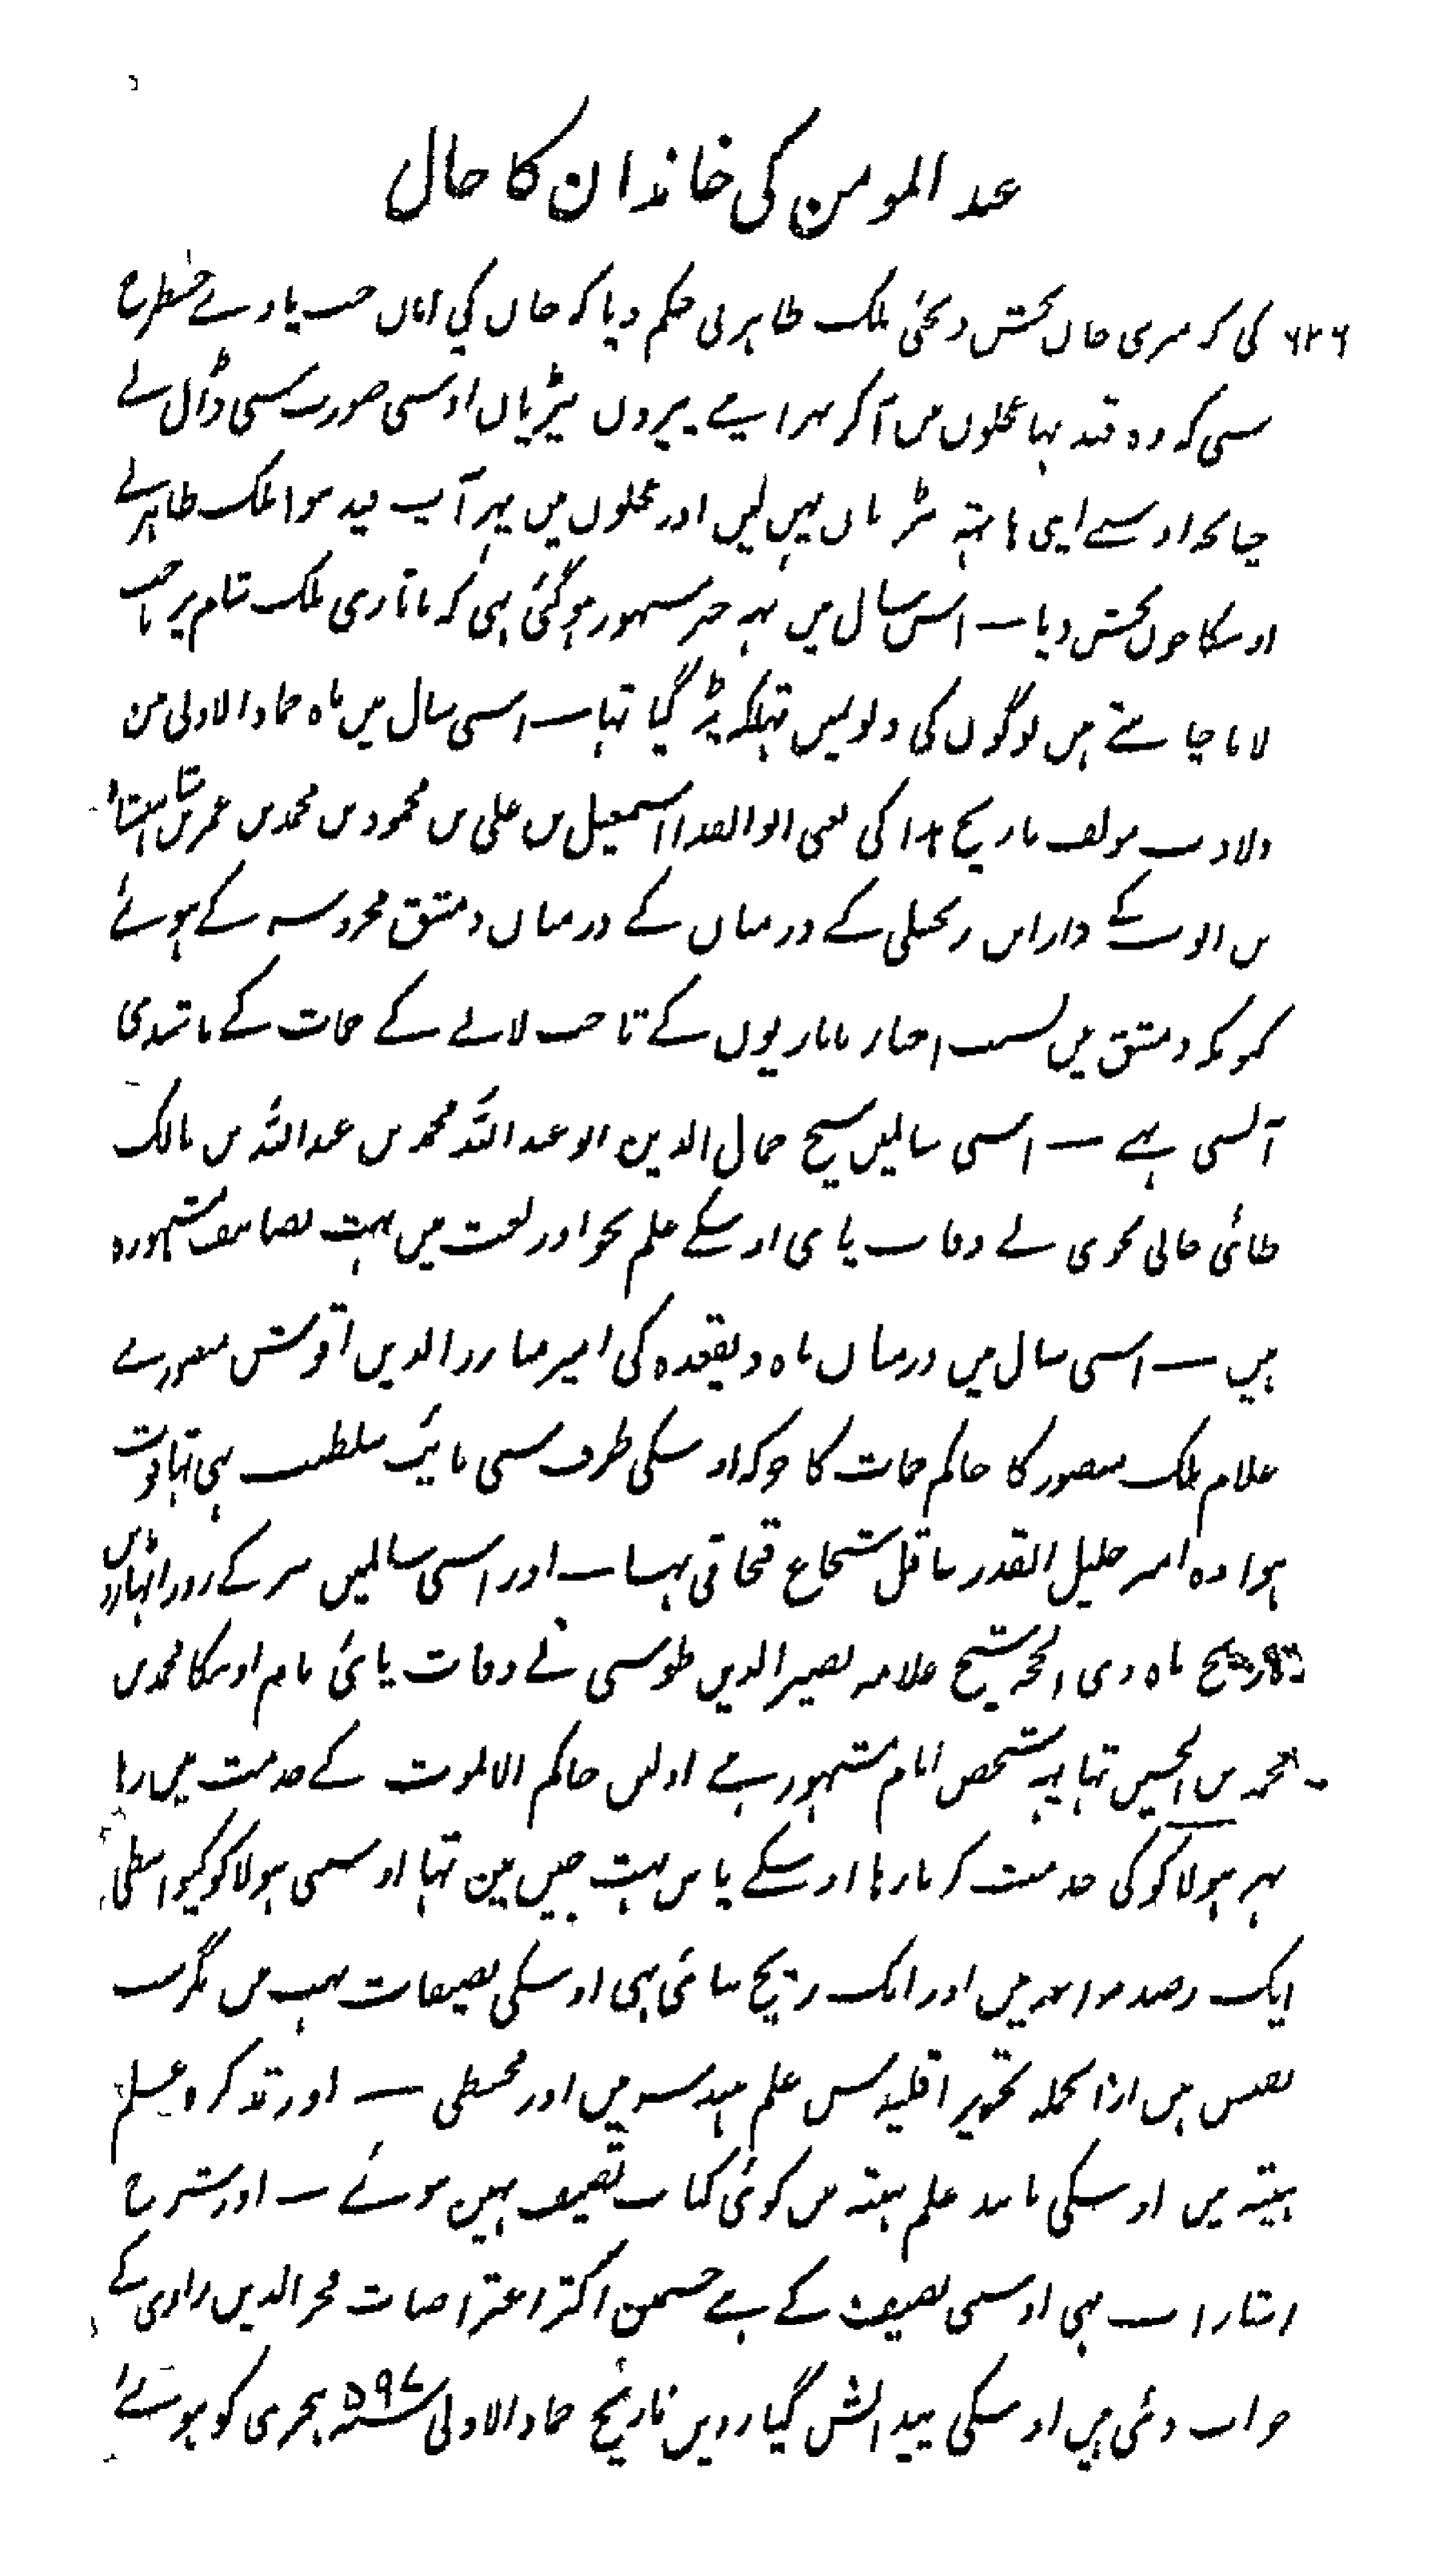 عبد المومن کی خاندان کا حال
۶۲۶ کی کہ میری جان بخش دیجئی ملک ظاہر نی حکم دیا کہ جان کی امان جب پاوے جسطرح
سی کہ وہ قید تہا محلوں میں آکر پہر اپنے پیروں بیڑیاں اوسی صورت سی ڈال لے
چنانچہ اوسنے اپنی ہاتہہ بیڑیاں پہن لیں اور محلوں میں پہر آپ قید ہوا ملک ظاہر نے
اوسکا خون بخش دیا — اس سال میں یہہ خبر مشہور ہو گئی تہی کہ تاتاری ملک شام پر تاخت
لانا چاہتے ہیں لوگوں کی دلونمیں تہلکہ پڑ گیا تہا — اسی سال میں ماہ جماد الاولی من
ولادت مولف تاریخ ہذا کی یعنی ابو الفدا اسمعیل بن علی بن محمود بن محمد بن عمر بن شاہنشاہ
بن ایوب کے دار ابن زنجیلی کے درمیان کے درمیان دمشق محروسہ کے ہوئے
کیونکہ دمشق میں بسبب اخبار تاتاریوں کے تاخت لانے کے حمات کے باشندی
آبسی تہے — اسی سالمیں شیخ جمال الدین ابو عبد اللہ محمد بن عبد اللہ بن مالک
طائی جیانی نحوی نے وفات پائی اوسکے علم نحو اور لغت میں بہت تصانیف مشہورہ
ہیں — اسی سال میں درمیان ماہ ذیقعدہ کی امیر مبارز الدین اقوش منصورے
غلام ملک منصور کا حاکم حمات کا جو کہ اوسکی طرف سی نایب سلطنت بہی تہا فوت
ہوا وہ امیر جلیل القدر عاقل شجاع قبچاقی تہا — اور اسی سالمیں پیر کے روز اٹہارویں
تاریخ ماہ ذی الحجہ شیخ علامہ نصیر الدین طوسی نے وفات پائی نام اوسکا محمد بن
محمد بن الحسین تہا یہہ شخص امام مشہور ہے اولمیں حاکم الالموت کے خدمت میں رہا
پہر ہولاکو کی خدمت کرتا رہا اوسکے پاس بہت چین مین تہا اوسنی ہولاکو کیواسطی
ایک رصد مراغہ میں اور ایک زیچ بنائی ہی اوسکی تصنیفات بہت ہیں مگر سب
نفیس ہیں ازانجملہ تحریر اقلیدس علم ہندسہ میں اور مجسطی — اور تذکرہ علم
ہیئتہ میں اوسکی مانند علم ہیئتہ میں کوئی کتاب تصنیف نہیں ہوئے — اور شرح
اشارات بہی اوسی تصنیف کے ہے جسمین اکثر اعتراضات فخر الدین رازی کے
جواب دئی ہیں اوسکی پیدائش گیارویں تاریخ جماد الاولی سنہ ۵۹۷ ہجری کو ہوئے